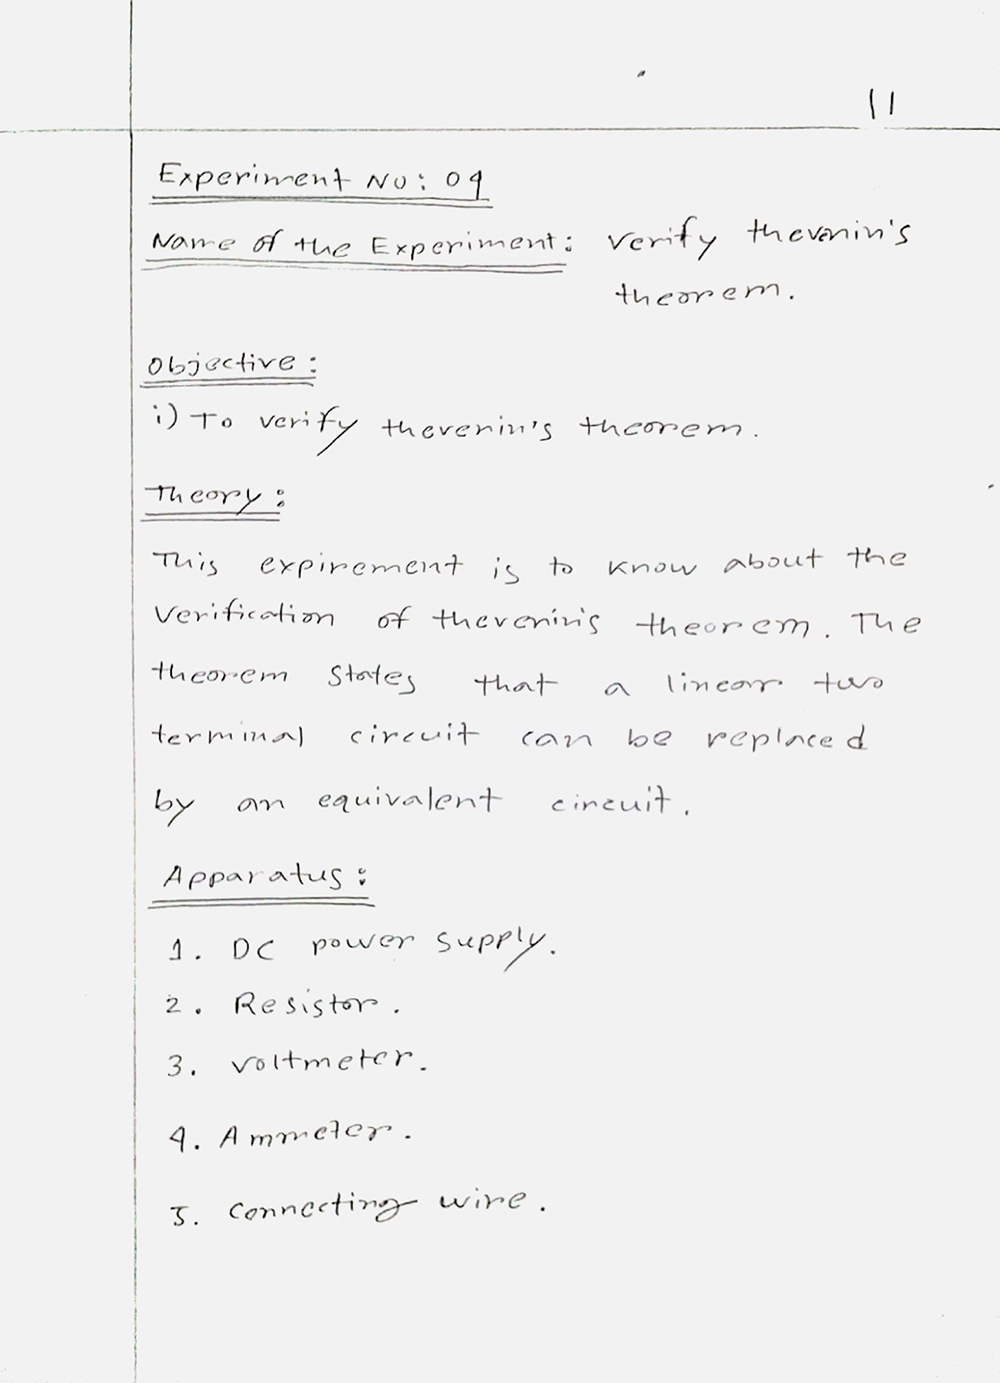 11
Experiment No: 04
Name of the Experiment: Verify thevenin's
theorem.
Objective:
i) To verify thevenin's theorem.
Theory:
This expirement is to know about the
Verification of thevenin's theorem. The
theorem states that a linear two
terminal circuit can be replaced
by an equivalent circuit.
Apparatus:
1. DC power supply.
2. Resistor.
3. Voltmeter.
4. Ammeter.
5. Connecting wire.